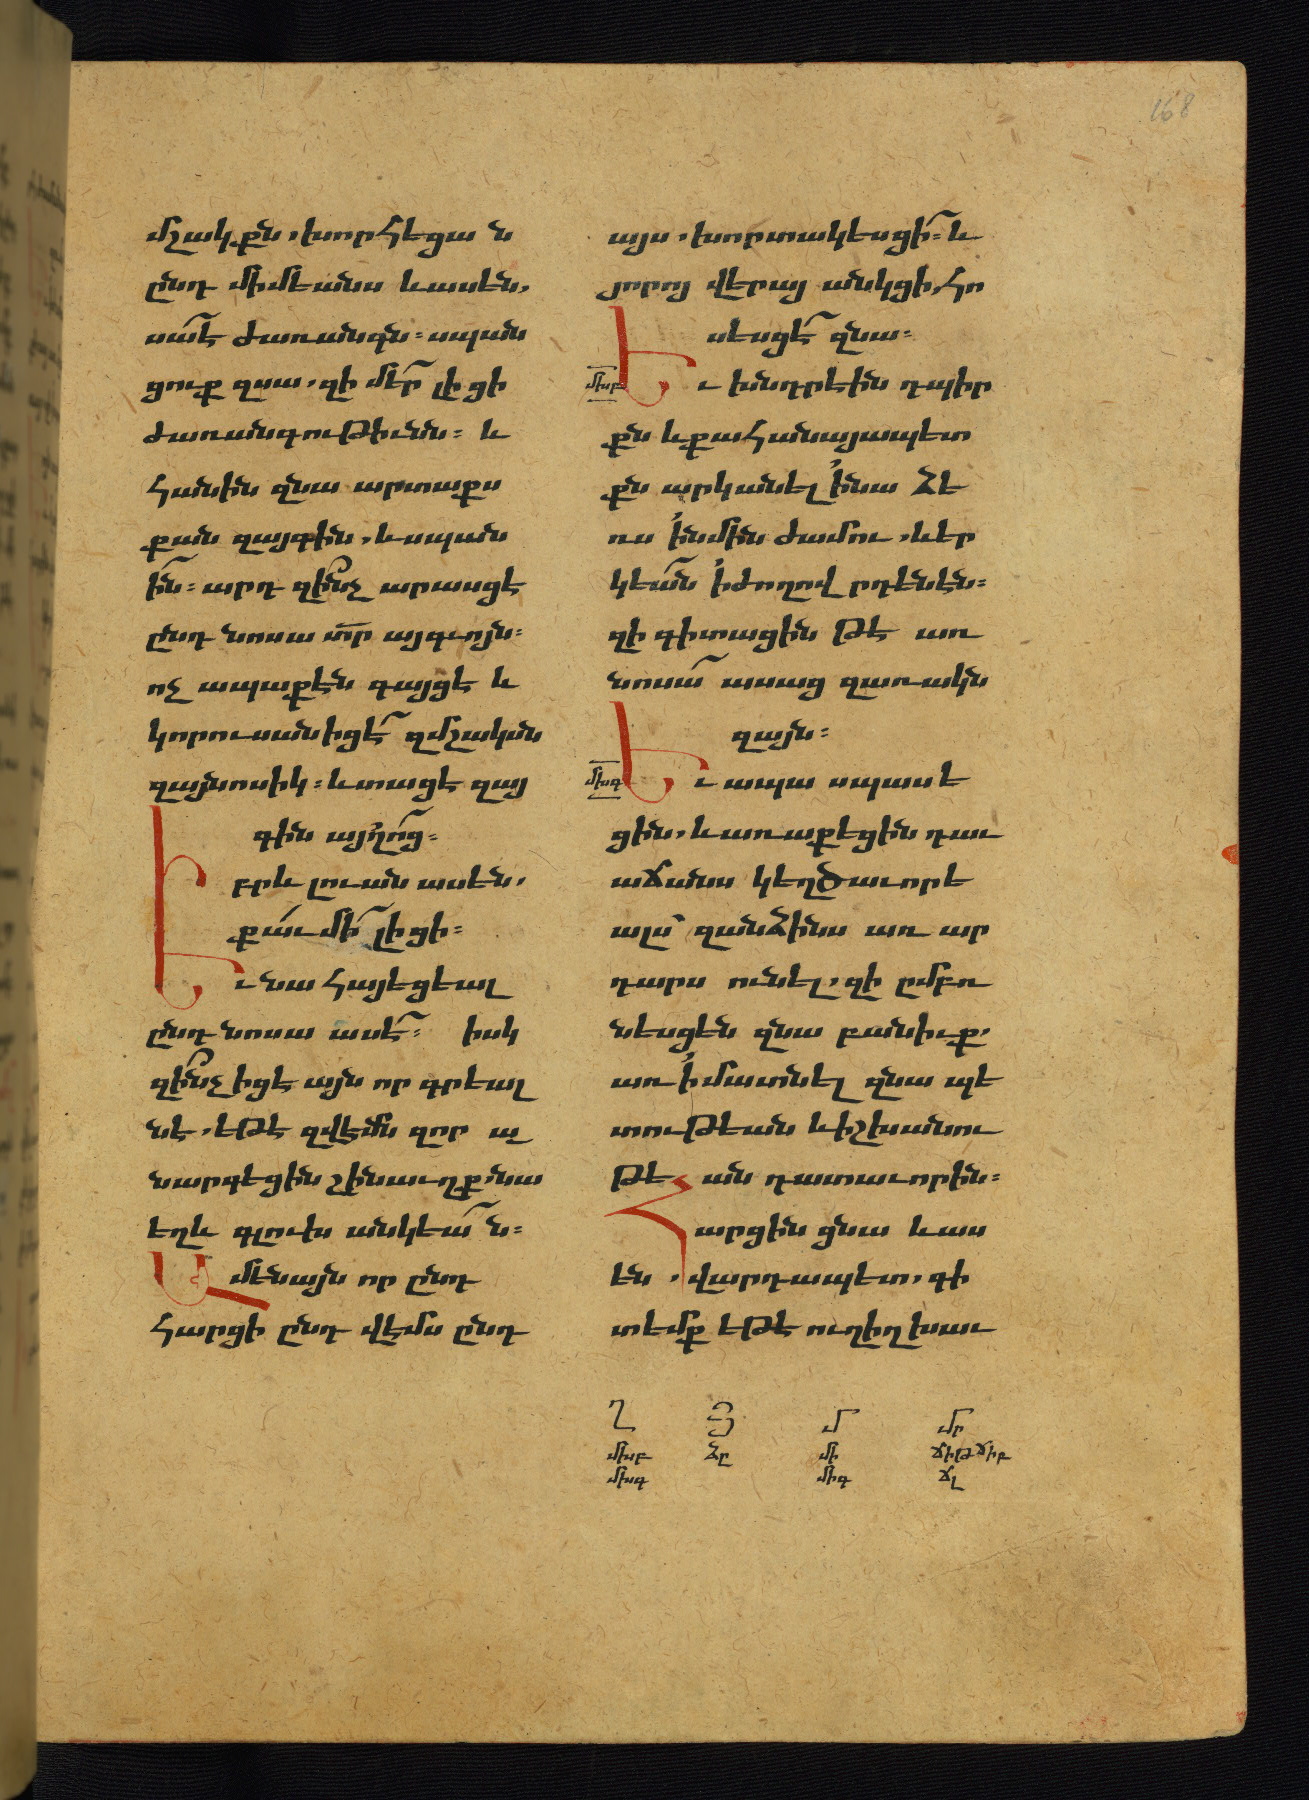 168
մշակքն, խորհեցան
ընդ միմեանս և ասեն,
սա՛է ժառանգն։ սպան
ցուք զսա, զի մեր լիցի
ժառանգութիւնն։ և
հանին զնա արտաքս
քան զայգին, և սպան
ին։ արդ զինչ արասցէ
ընդ նոսա տր այգւոյն։
ոչ ապաքէն գայցէ և
կորուսանիցէ զմշակսն
զայնոսիկ։ և տացէ զայ
գին այլոց։
Իբրև լուան ասեն,
քաւ մի լիցի։
Եւ նա հայեցեալ
ընդ նոսա ասէ։ իսկ
զինչ իցէ այն որ գրեալ
նէ, եթէ զվէմն զոր ա
նարգեցին շինաւղքնա
եղև գլուխ անկեան։
Ամենայն որ ընդ
հարցի ընդ վէմս ընդ
այս, խորտակեսցի։ և
յորոյ վերայ անկցի, հո
սեսցէ զնա։
մխբ
Եւ խնդրէին դպիր
քն և քահանայապետ
քն արկանել ի նա ձե
ռս ի նմին ժամու, և եր
կեան ի ժողով րդենէն։
զի գիտացին թէ առ
նոսա ասաց զառակն
զայն։
մխգ
Եւ ապա սպասե
ցին, և առաքեցին դաւ
աճանս կեղծաւորե
ալս զանձինս առ ար
դարս ունել, զի ըմբռ
նեսցեն զնա բանիւք,
առ ի մատնել զնա պե
տութեան և իշխանու
թեան դատաւորին։
Հարցին ցնա և աս
են, վարդապետ, գի
տեմք եթէ ուղիղ խաւ
Ղ Յ Մ Մր
մխբ ձը մի ճիթ ճիբ
մխգ միգ ճլ